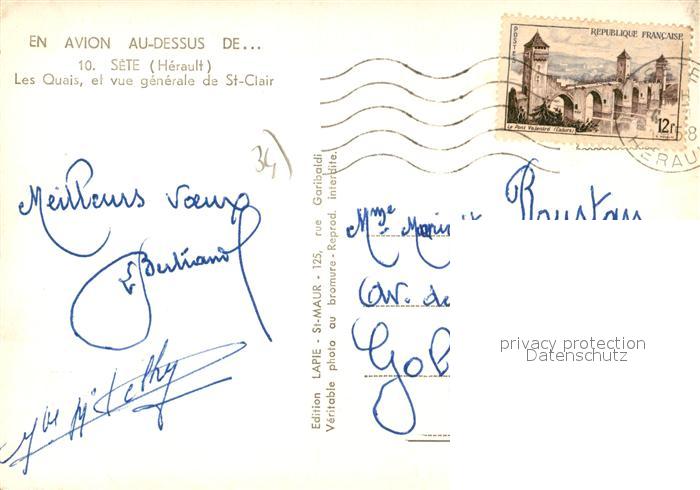 EN AVION AU-DESSUS DE...
10. SÈTE (Hérault)
Les Quais, et vue générale de St-Clair
34
Meilleurs vœux
Bertrand
Edition LAPIE - St-MAUR - 125, rue Garibaldi
Véritable photo au bromure - Reprod. interdite.
POSTES
REPUBLIQUE FRANÇAISE
Le Pont Valentré (Cahors)
12f
HERAULT
Mme
Roustan
Av. de
privacy protection
Datenschutz